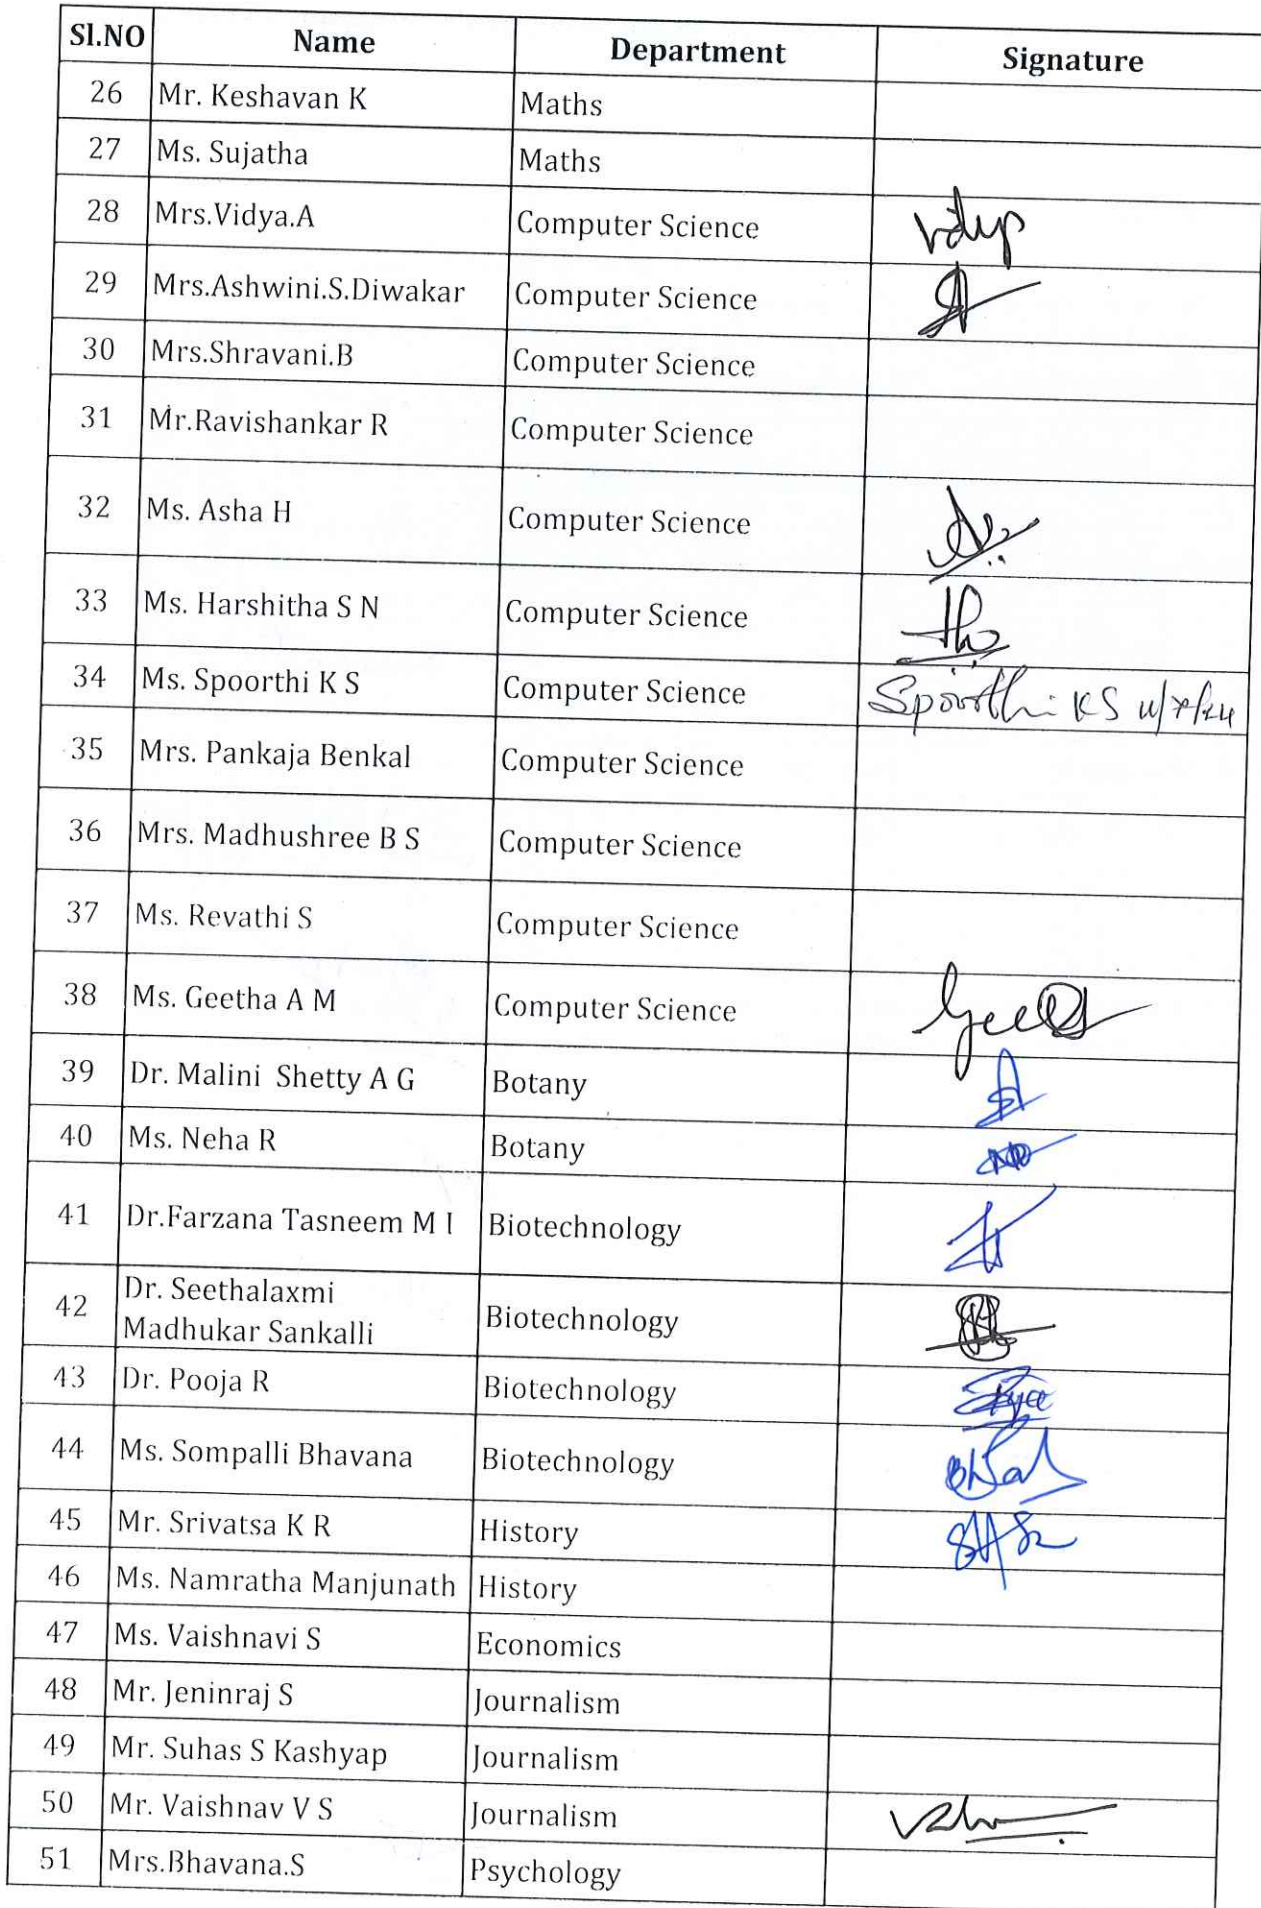 Sl.NO Name Department Signature
26 Mr. Keshavan K Maths
27 Ms. Sujatha Maths
28 Mrs.Vidya.A Computer Science
29 Mrs.Ashwini.S.Diwakar Computer Science
30 Mrs.Shravani.B Computer Science
31 Mr.Ravishankar R Computer Science
32 Ms. Asha H Computer Science
33 Ms. Harshitha S N Computer Science
34 Ms. Spoorthi K S Computer Science Spoorthi KS
35 Mrs. Pankaja Benkal Computer Science
36 Mrs. Madhushree B S Computer Science
37 Ms. Revathi S Computer Science
38 Ms. Geetha A M Computer Science
39 Dr. Malini Shetty A G Botany
40 Ms. Neha R Botany
41 Dr.Farzana Tasneem M I Biotechnology
42 Dr. Seethalaxmi
Madhukar Sankalli Biotechnology
43 Dr. Pooja R Biotechnology
44 Ms. Sompalli Bhavana Biotechnology
45 Mr. Srivatsa K R History
46 Ms. Namratha Manjunath History
47 Ms. Vaishnavi S Economics
48 Mr. Jeninraj S Journalism
49 Mr. Suhas S Kashyap Journalism
50 Mr. Vaishnav V S Journalism
51 Mrs.Bhavana.S Psychology